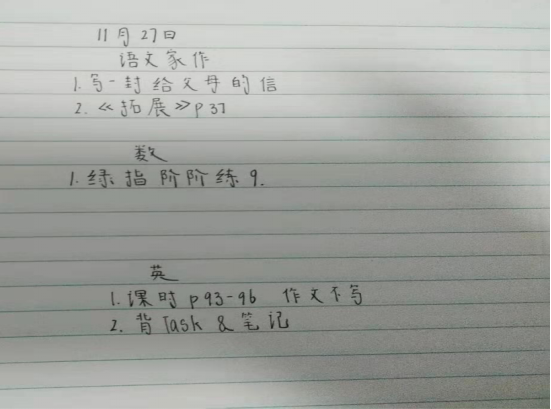 11月27日
语文家作
1. 写一封给父母的信
2. 《拓展》p37
数
1. 绿指阶阶练9.
英
1. 课时 p93-96 作文不写
2. 背Task & 笔记